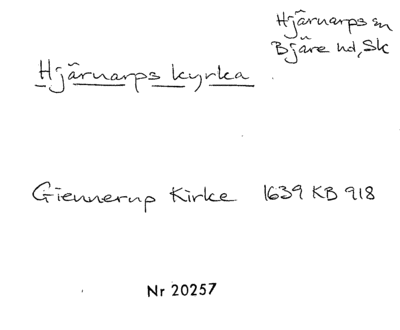 Hjärnarps sn
Bjäre hd, Sk
Hjärnarps kyrka
Giennerup Kirke 1639 KB 918
Nr 20257